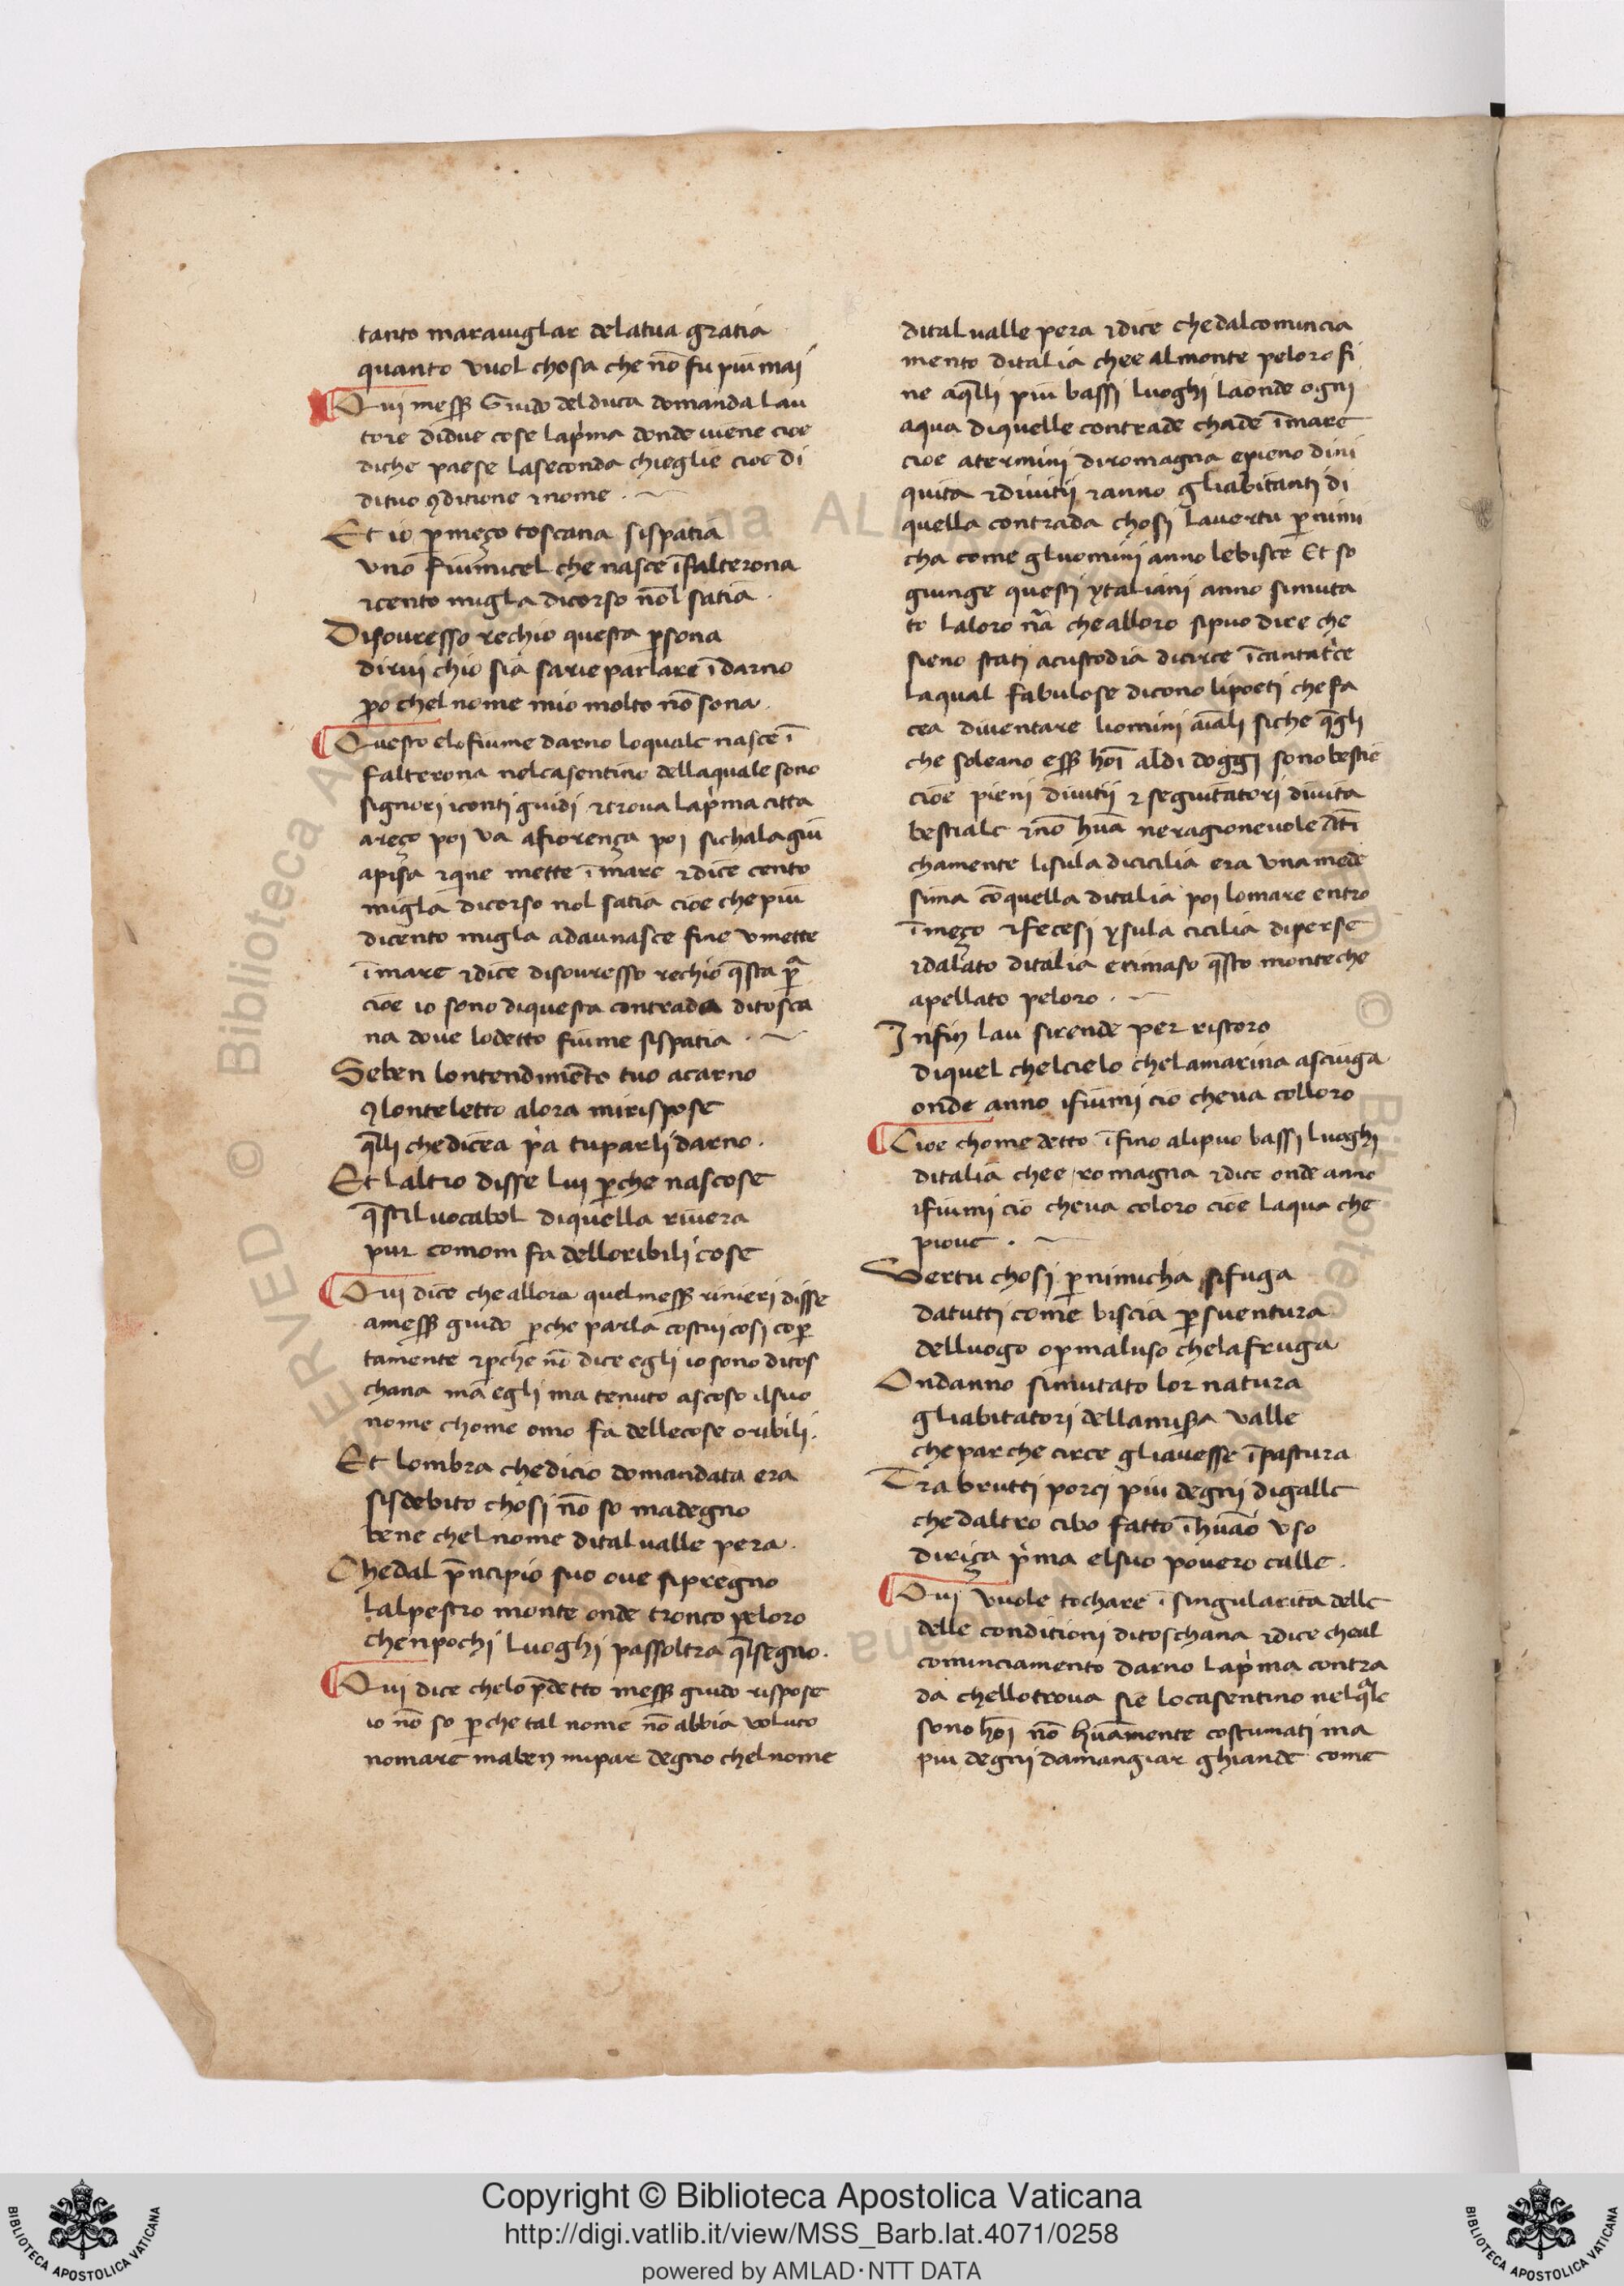 tanto marauiglar delatua gratia
quanto vuol chosa che nō fu piu mai
Qui meſſ Guido delduca domanda lau
tore didue cose lap̓ma donde uiene cioe
diche paese laseconda chieglie cioe di
dituo ꝯditione ⁊ nome .
Et io ꝑ meço toscana sispatia
vno fiumicel che nasce ī falterona
⁊cento migla dicorso nōl satia .
Disouresso rechio questa ꝑsona
dirui chio sia sarie parlare īdarno
ꝑo chel nome mio molto nō sona .
Questo elo fiume darno loquale nasce ī
falterona nelcasentino dellaquale sono
signori iconti guidi ⁊troua lap̓ma citta
areço poi va afiorença poi sichalagiu
apisa ⁊que mette ī mare ⁊dice cento
migla dicorso nol satia cioe che piu
dicento migla adaunasce fine vmette
ī mare ⁊dice disouresso rechio q̄sta ꝑ
cioe io sono diquesta contrada ditosca
na doue lodetto fiume sispatia .
Seben lontendimēto tuo acarno
ꝯlonteletto alora mirispose
q̄lli chedicea p̓a tuparli darno .
Et laltro disse lui ꝑche nascose
q̄stil uocabol diquella riuera
pur comom fa delloribili cose
Qui dice che allora quel meſſ rinieri disse
ameſſ guido ꝑche parla costui cosi coꝑ
tamente ⁊ꝑche nō dice egli io sono ditos
chana ma egli ma tenuto ascoso ilsuo
nome chome omo fa dellecose oribili .
Et lombra chedicio domandata era
sisdebito chosi nō so madegno
bene chel nome dital ualle pera .
Chedal p̄ncipio suo oue sipregno
lalpestro monte onde tronco peloro
chenpochi luoghi passoltra q̄l segno .
Qui dice chelo p̄detto meſſ guido rispose
io nō so ꝑche tal nome nō abbia voluto
nomare maben mipar degno chelnome
dital ualle pera ⁊dice chedalcomincia
mento ditalia chee almonte peloro fi
ne aq̄lli piu bassi luoghi laonde ogni
aqua diquelle contrade chade ī mare
cioe atermini diromagna epieno dini
quita ⁊diuitii ⁊anno gliabitanti di
quella contrada chosi lauertu ꝑ nimi
cha come gluomini anno lebisce Et so
giunge questi ytaliani anno simuta
to laloro nā che alloro sipuo dire che
sieno stati acustodia dicirce īcantat̓ce
laqual fabulose dicono lipoeti che fa
cea diuentare liomini aīali siche q̄gli
che soleano eſſ hoī aldi doggi sono bestie
cioe pieni diuitii ⁊ seguitatori diuita
bestiale ⁊nō hūa ne ragioneuole Āti
chamente lisula dicicilia era vna mede
sima cō quella ditalia poi lomare entro
ī meço ⁊fecesi ysula cicilia diperse
⁊dalato ditalia erimaso q̄sto monte che
apellato peloro .
Infin lau sirende per ristoro
diquel chelcielo chelamarina asciuga
onde anno ifiumi cio cheua colloro
Cioe chome detto ī fino alipuo bassi luoghi
ditalia chee romagna ⁊dice onde anno
ifiumi cio cheua coloro cioe laqua che
pioue .
Vertu chosi ꝑ nimicha sifuga
datutti come biscia ꝑ suentura
delluogo oꝑ maluso chelafruga
Ondanno simutato lor natura
gliabitatori dellamiſa valle
che par che circe gliauesse ī pastura
Tra brutti porci piu degni digalle
chedaltro cibo fatto ī hūao vso
diriça p̓ma elsuo pouero calle .
Qui vuole tochare ī singularita delle
delle conditioni ditoschana ⁊dice cheal
cominciamento darno lap̓ma contra
da chellotroua sie locasentino nelq̄le
sono hoī nō hūamente costumati ma
piu degni damangiar ghiande come
Copyright © Biblioteca Apostolica Vaticana
http://digi.vatlib.it/view/MSS_Barb.lat.4071/0258
powered by AMLAD·NTT DATA
BIBLIOTECA APOSTOLICA VATICANA
BIBLIOTECA APOSTOLICA VATICANA